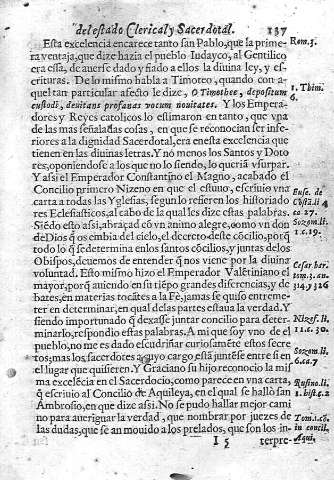 del estado Clerical, y Sacerdotal. 137
Esta excelencia encarece tanto san Pablo, que la prime- Rom. 3.
ra ventaja, que dize hazia el pueblo Iudayco, al Gentilico
era essa, de auerse dado y fiado a ellos la diuina ley, y es-
crituras. De lo mismo habla a Timoteo, quando con a-
quel tan particular afecto le dize, O Timothee, depositum 1. Thim.
custodi, deuitans profanas vocum nouitates. Y los Empera- 6.
dores y Reyes catolicos lo estimaron en tanto, que vna
de las mas señaladas cosas, en que se reconocian ser infe-
riores a la dignidad Sacerdotal, era en esta excelencia que
tienen en las diuinas letras. Y no menos los Santos y Doto
res, oponiendose a los que no lo siendo, lo queria vsurpar.
Y assi el Emperador Constantino el Magno, acabado el
Concilio primero Nizeno en que el estuuo, escriuio vna
carta a todas las Yglesias, segun lo refieren los historiado Euse. de
res Eclesiasticos, al cabo de la qual les dize estas palabras. Cõstã. li 4
Siẽdo esto assi, abraçad cõ vn animo alegre, como vn don co. 27.
de Dios q̃ os embia del cielo, el decreto deste cõcilio, porq̃ Sozom. li
todo lo q̃ se determina en los santos cõcilios, y juntas delos 1. c. 19.
Obispos, deuemos de entender q̃ nos viene por la diuina
voluntad. Esto mismo hizo el Emperador Valẽtiniano el Cesar bar.
mayor, porq̃ auiendo en su tiẽpo grandes diferencias, y de tom. 3. an.
bates, en materias tocãtes a la Fè, jamas se quiso entreme- 324, y 326
ter en determinar, en qual delas partes estaua la verdad. Y
siendo importunado q̃ dexasse juntar concilio para deter- Nizef. li.
minarlo, respondio estas palabras. A mi que soy vno de el 11. c. 30.
pueblo, no me es dado escudriñar curiosamẽte estos secre
tos; mas los sacerdotes a cuyo cargo está jũtese entre si en Sozom. li
el lugar que quisieren. Y Graciano su hijo reconocio la mis 6. co. 7
ma excelẽcia en el Sacerdocio, como parece en vna carta,
q̃ escriuio al Concilio de Aquileya, en el qual se hallò san Rufino. li.
Ambrosio, en que dize assi. No se pudo hallar mejor cami 1. hist. c. 2
no para aueriguar la verdad, que nombrar por juezes de Tom. 1. cõ.
las dudas, que se an mouido a los prelados, que son los in- in concil.
I 5 terpre- Aqui.